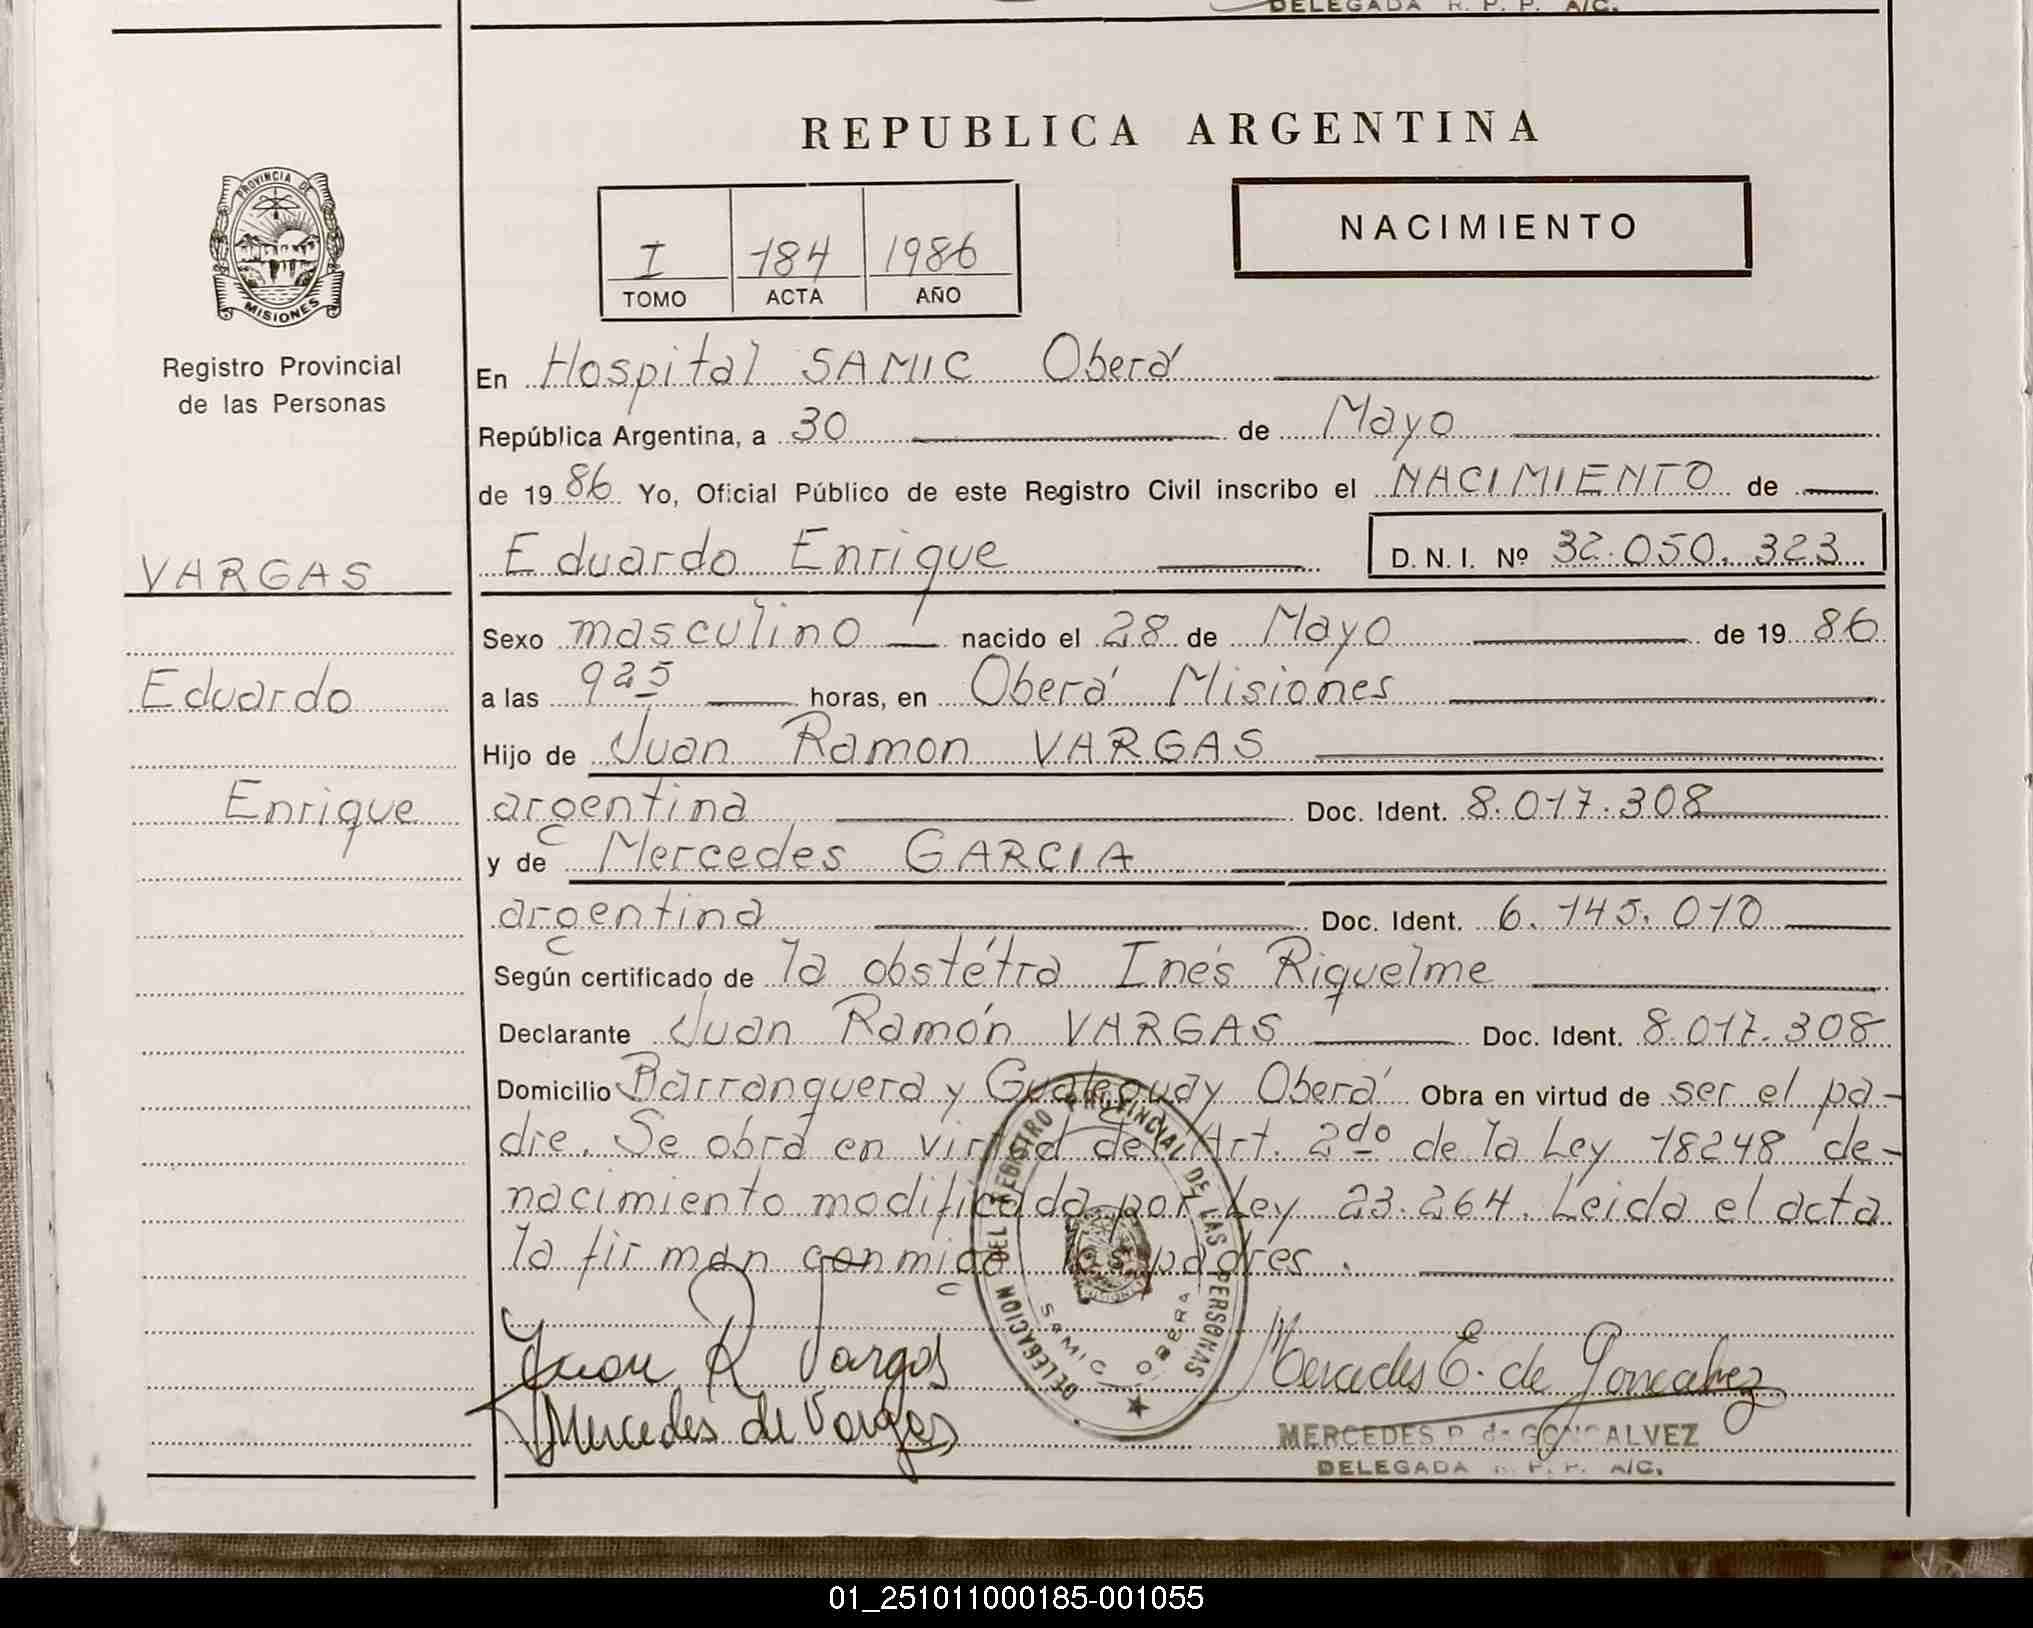 DELEGADA R. P. P. A/C.
REPUBLICA ARGENTINA
PROVINCIA DE
MISIONES
I 184 1986
TOMO ACTA AÑO
NACIMIENTO
Registro Provincial
de las Personas
VARGAS
Eduardo
Enrique
En Hospital SAMIC Oberá
República Argentina, a 30 de Mayo
de 1986 Yo, Oficial Público de este Registro Civil inscribo el NACIMIENTO de
Eduardo Enrique D.N.I. Nº 32.050.323
Sexo masculino nacido el 28 de Mayo de 1986
a las 925 horas, en Oberá Misiones
Hijo de Juan Ramon VARGAS
argentina Doc. Ident. 8.017.308
y de Mercedes GARCIA
argentina Doc. Ident. 6.145.010
Según certificado de la obstétra Inés Riquelme
Declarante Juan Ramón VARGAS Doc. Ident. 8.017.308
Domicilio Barranquera y Gualeguay Oberá Obra en virtud de ser el pa-
dre. Se obra en virtud del Art. 2do de la Ley 18248 de-
nacimiento modificada por Ley 23.264. Leida el acta
la firman conmigo los padres.
DELEGACION DEL REGISTRO PROVINCIAL DE LAS PERSONAS
SAMIC OBERA
Juan R Vargas
Mercedes de Vargas
Mercedes E. de Goncalvez
MERCEDES de GONSALVEZ
DELEGADA R. P. P. A/C.
01_251011000185-001055